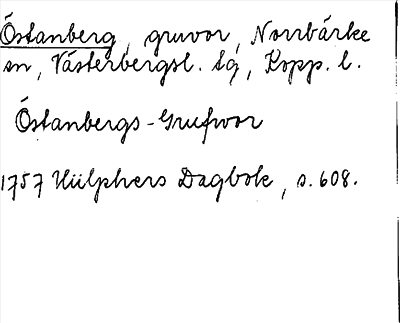 Östanberg, gruvor, Norrbärke
sn, Västerbergsl. dg, Kopp. l.
Östanbergs-Grufwor
1757 Hülphers Dagbok, s. 608.